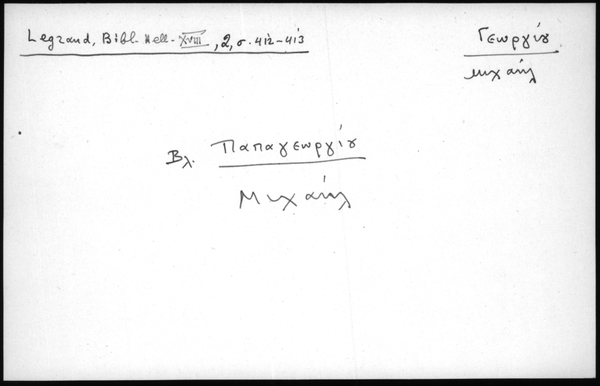 Legrand, Bibl. Hell. XVIII, 2, σ. 412-413
Γεωργίου
Μιχαήλ
Βλ. Παπαγεωργίου
Μιχαήλ